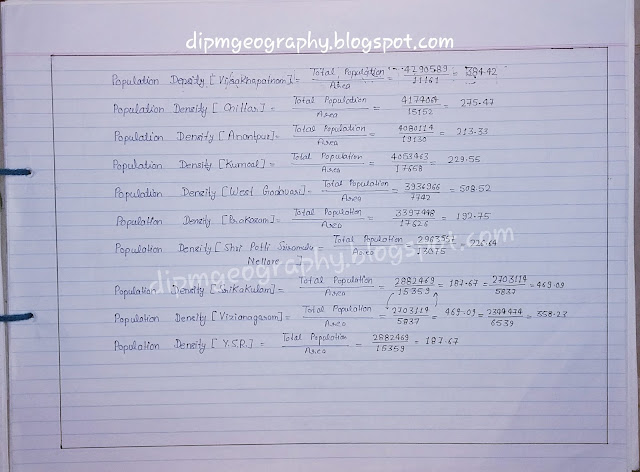 dipmgeography.blogspot.com
Population Density [Visakhapatnam] = Total Population / Area = 4290589 / 11161 = 384.42
Population Density [Chittor] = Total Population / Area = 4174064 / 15152 = 275.47
Population Density [Anantpur] = Total Population / Area = 4080114 / 19130 = 213.33
Population Density [Kurnool] = Total Population / Area = 4053463 / 17658 = 229.55
Population Density [West Godavari] = Total Population / Area = 3936966 / 7742 = 508.52
Population Density [Prakasam] = Total Population / Area = 3397448 / 17626 = 192.75
Population Density [Shri Potti Sriramulu = Total Population / Area = 13075 = 226.64
Nellore ]
dipmgeography.blogspot.com
Population Density [Srikakulam] = Total Population / Area = 2882469 / 15359 = 187.67 = 2703114 / 5837 = 469.09
Population Density [Vizianagaram] = Total Population / Area = 2703114 / 5837 = 469.09 = 2344474 / 6539 = 358.23
Population Density [Y.S.R.] = Total Population / Area = 2882469 / 15359 = 187.67